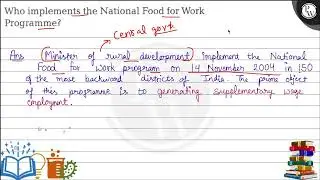 Who implements the National Food for Work
Programme?
Central govt
Ans (Minister of rural development) implement the National
Food for work program on 14 November 2004 in 150
of the most backward districts of India. The prime object
of this programme is to generating supplementary wage
employment.